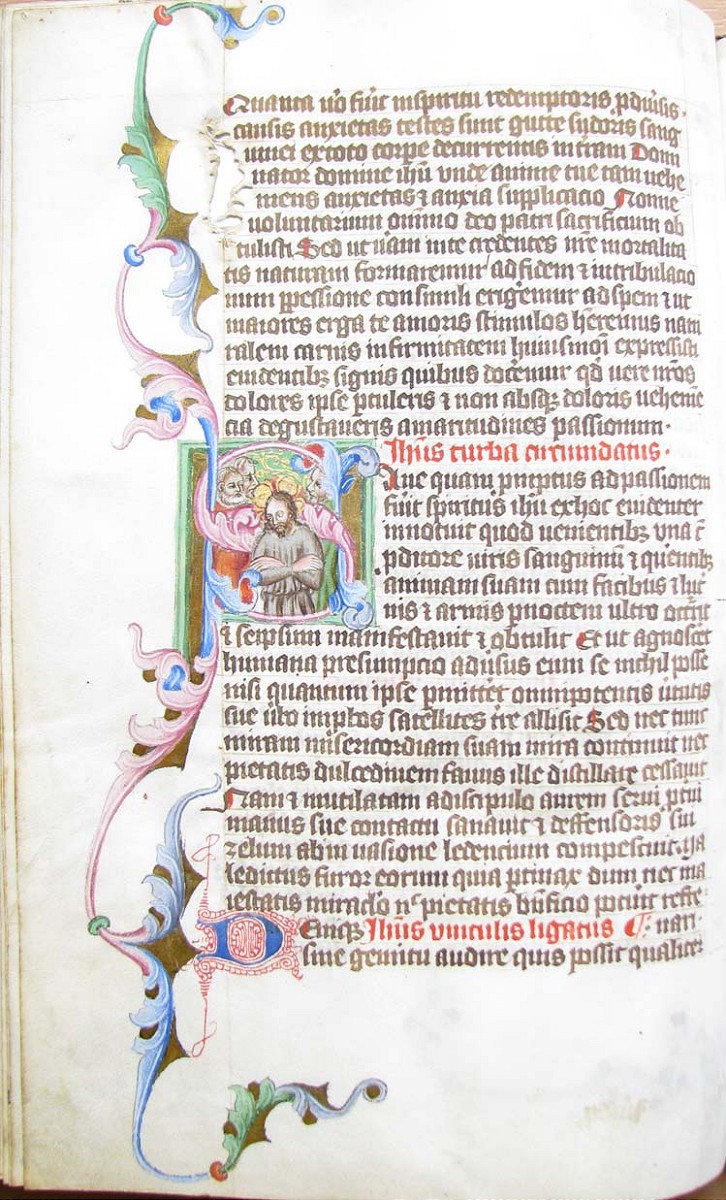 Quanta u͛o fuit inspiritu redemptoris pdiuisis.
causis anxietas testes sunt gutte sydoris sang
uinei extoto corpe decurrentis in tram Dom
nator domine ihū vnde anime tue tam uehe
mens anxietas ⁊ anxia supplicacio Nonne
uoluntarium omnino deo patri sacrificium ob
tulisti Sed ut uani inte credentes nr̄e mortalita
tis naturam formaremur ad fidem ⁊ intribulacio
num ꝑpessione consimili erigemur ad spem ⁊ ut
maiores erga te amoris stimulos herenius natu
ralem carnis infirmitatem huiusmōi expressisti
euidentibꝫ signis quibus docemur qd uere nr̄os
dolores ipse ptuleris ⁊ non absqꝫ doloris uehemē
cia degustaueris amaritudines passionum.
Ihūs turba circumdatus.
Aue quam pmptus ad passionem
fuit spiritus ihū exhoc euidenter
innotuit quod uenientibꝫ vna c̄
pditore uiris sanguinū ⁊ quentibꝫ
animam suam cum facibus ⁊ luc͛
nis ⁊ armis pnoctem ultro occurrit
⁊ seipsum manifestauit ⁊ obtulit Et ut agnoscet
humana presumpcio aduersus eum se nichil posse
nisi quantum ipse pmittet omnipotentis uirtutis
sue uerbo impbos satellites tr̄e allisit Sed nec tunc
miram misericordiam suam mira continuit nec
pietatis dulcedinem fauus ille distillare cessauit
Nam ⁊ mutilatam adiscipulo aurem serui ptini
manus sue contactu sanauit ⁊ deffensoris sui
zelum abin uasione ledencium compescuit. Ma
ledictus furor eorum quia ptinax dum nec ma
iestatis miraclo nec pietatis bn̄ficio potuit refre
Enique Ihūs vinculis ligatus ¶: nari.
sine gemitu audire quis possit qualiter